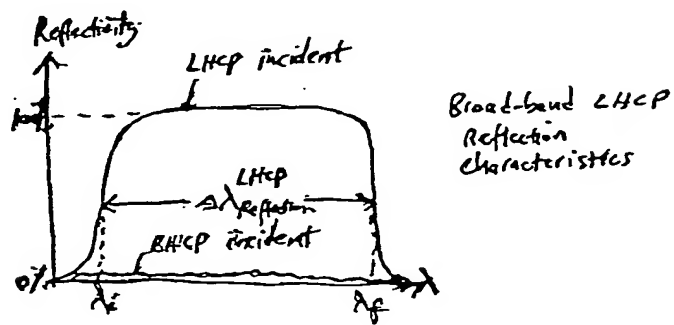 Reflectivity
LHCP incident
Broad-band LHCP
Reflection
Characteristics
LHCP
Δλ Reflection
RHCP incident
0%
λi
λf
λ